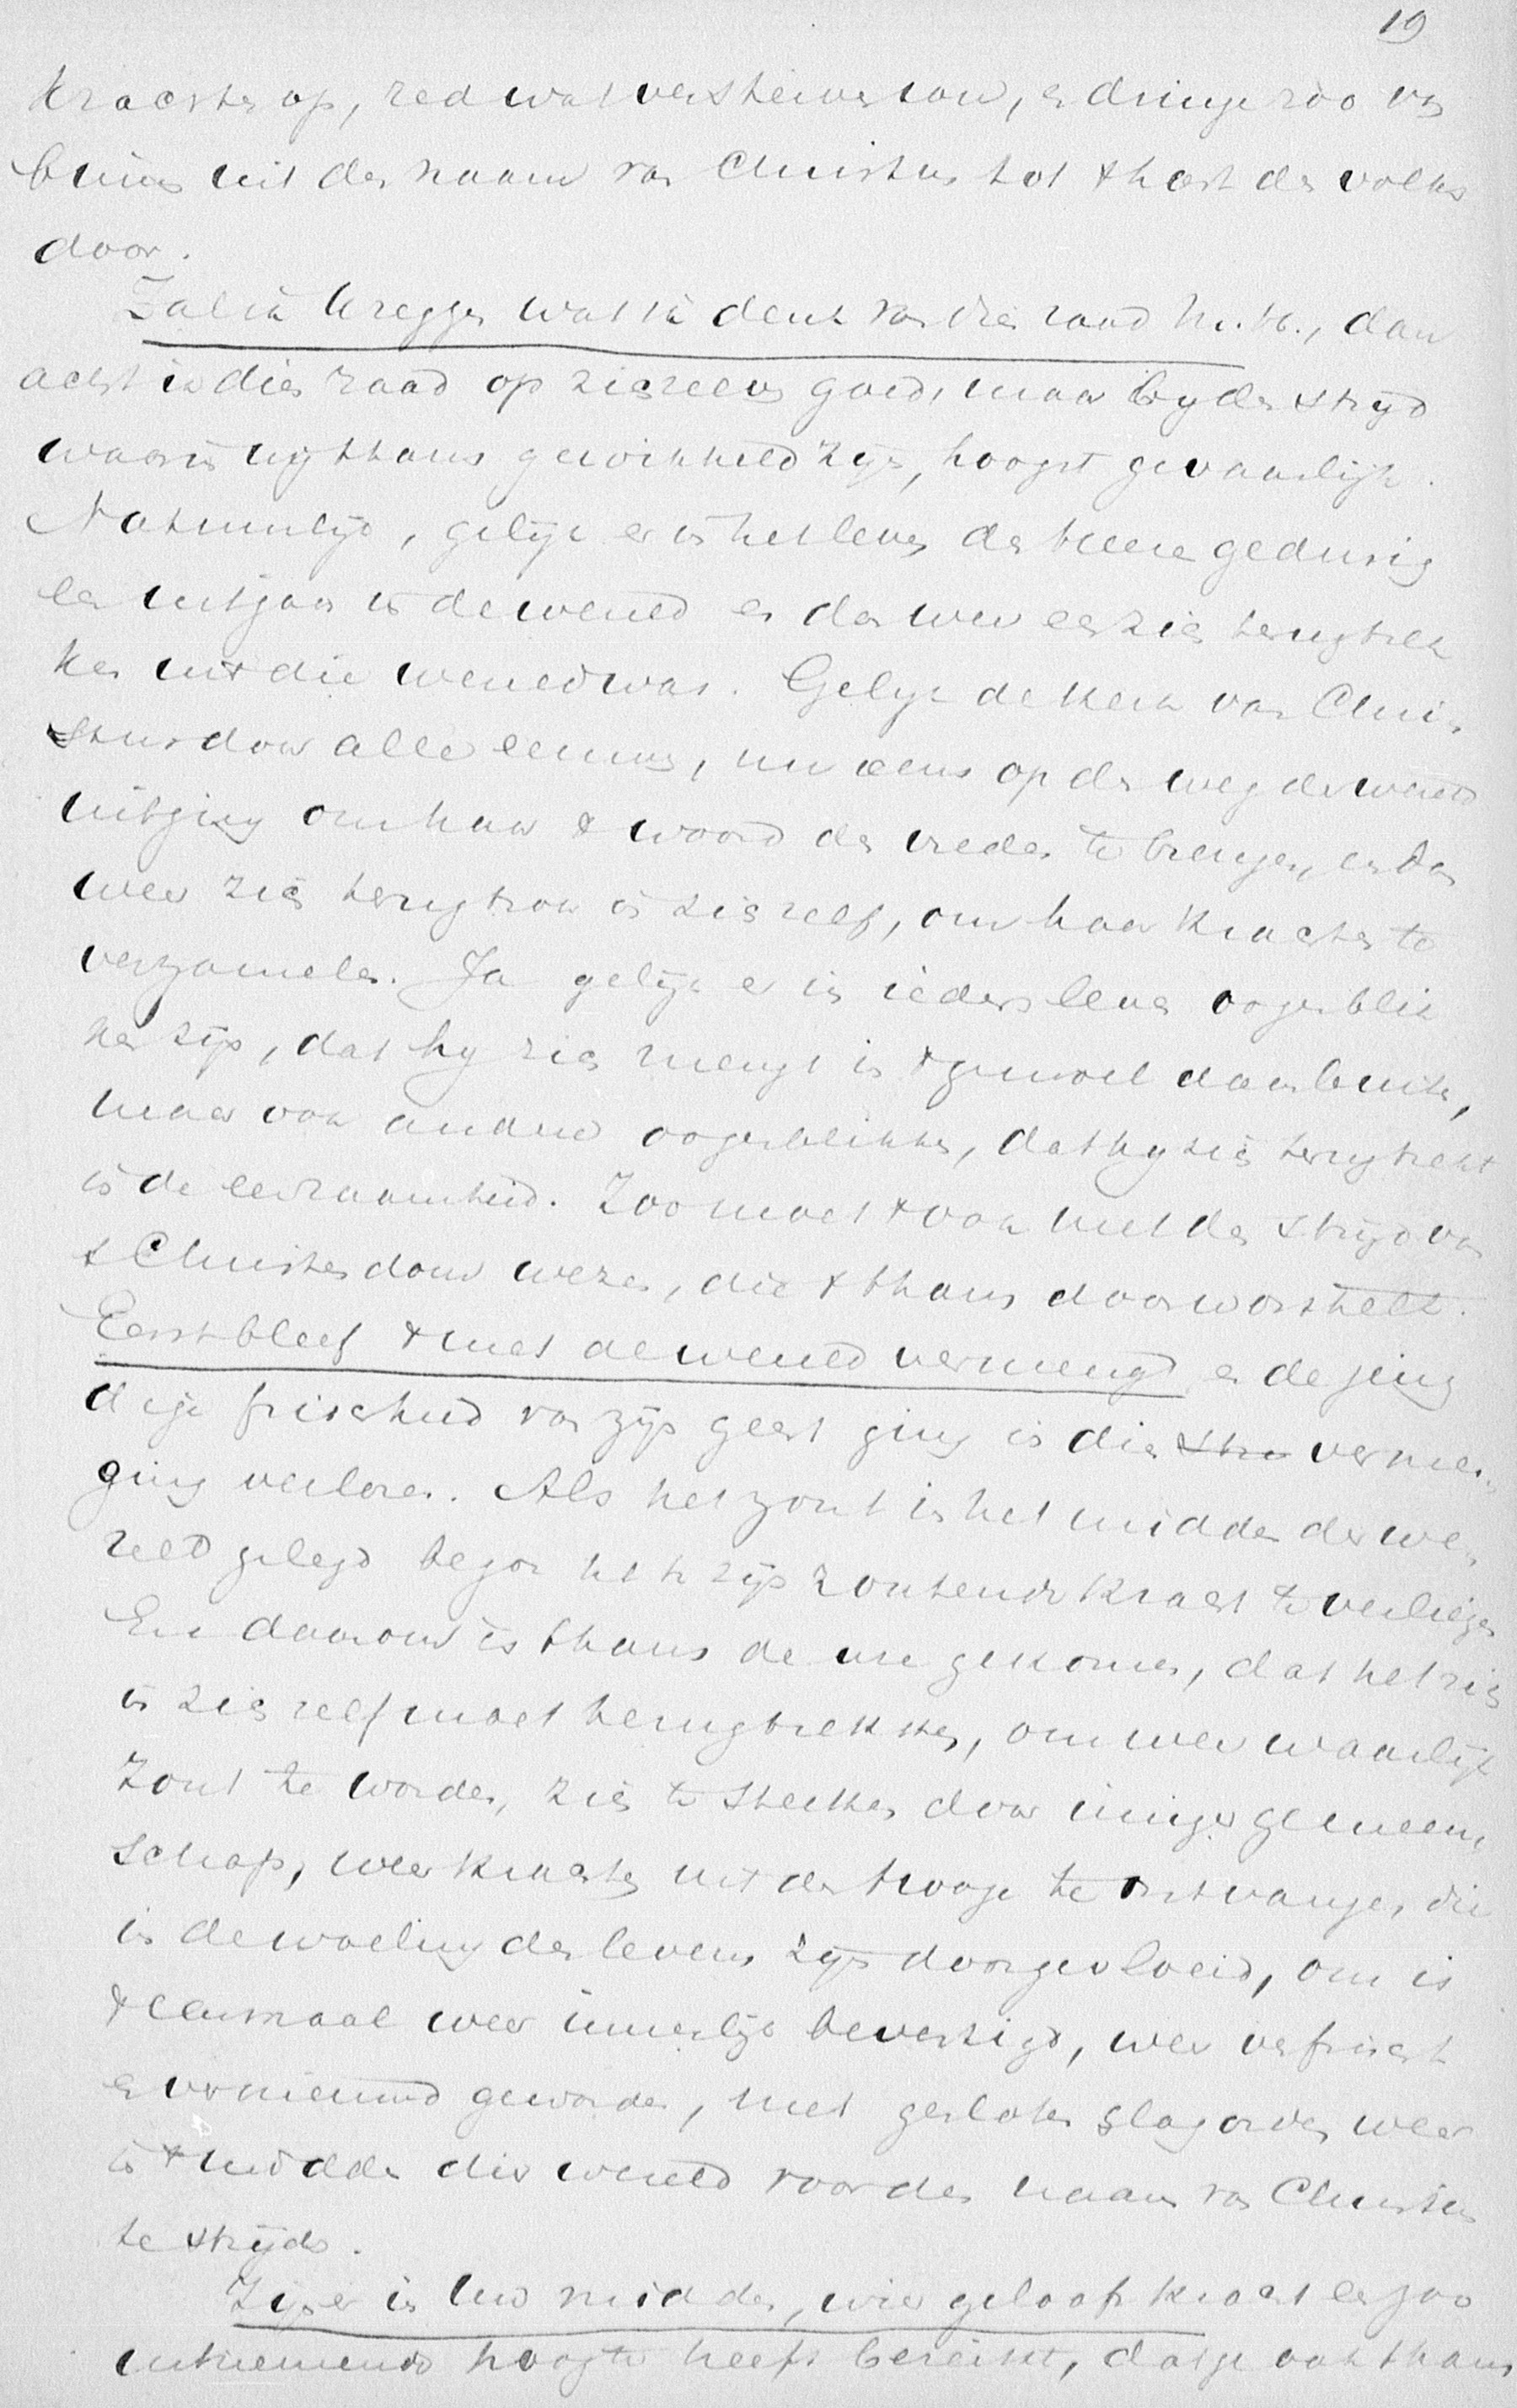 19
krachten op, red wat versterven kan, en dringe zoo van
binnen uit den naam van Christus tot 't hart des volks
door.
Zal ik U zeggen wat ik denk van dien raad M. H., dan
acht ik dien raad op zich zelven goed, maar bij den strijd
waarin wij thans gewikkeld zijn, hoogst gevaarlijk.
Natuurlijk, gelijk er in het leven des Heeren gedurig
een uitgaan in de wereld en dan weer een zich terugtrek
ken uit die wereld was. Gelijk de Kerk van Chris
tus door alle eeuwen, nu eens op den weg der wereld
uitging om haar 't woord des vredes te brengen, en dan
weer zich terugtrok in zich zelf, om haar krachten te
verzamelen. Ja gelijk er in ieders leven oogenblik
ken zijn, dat hij zich mengt in 't gewoel daarbuiten,
maar ook andere oogenblikken, dat hij zich terugtrekt
in de eenzaamheid. Zoo moet 't ook met den strijd van
't Christendom wezen, die 't thans doorworstelt.
Eerst bleef 't met de wereld vermengd en de jeug
dige frischheid van zijn geest ging in die stre vermen
ging verloren. Als het zout in het midden der we
reld gelegd begon het zijn zoutende kracht te verliezen
En daarom is thans de ure gekomen, dat het zich
in zich zelf moet terugtrekken, om weer waarlijk
zout te worden, zich te sterken door innige gemeen
schap, weer krachten uit den hooge te ontvangen, die
in de woeling des levens zijn doorgevloeid, om is
't eenmaal weer innerlijk bevestigd, weer verfrischt
en vernieuwd geworden, met gesloten slagorden weer
in 't midden der wereld voor den naam van Christus
te strijden.
Zijn er in Uw midden, wier geloofskracht en zoo
uitnemende hoogte heeft bereikt, dat ge ook thans